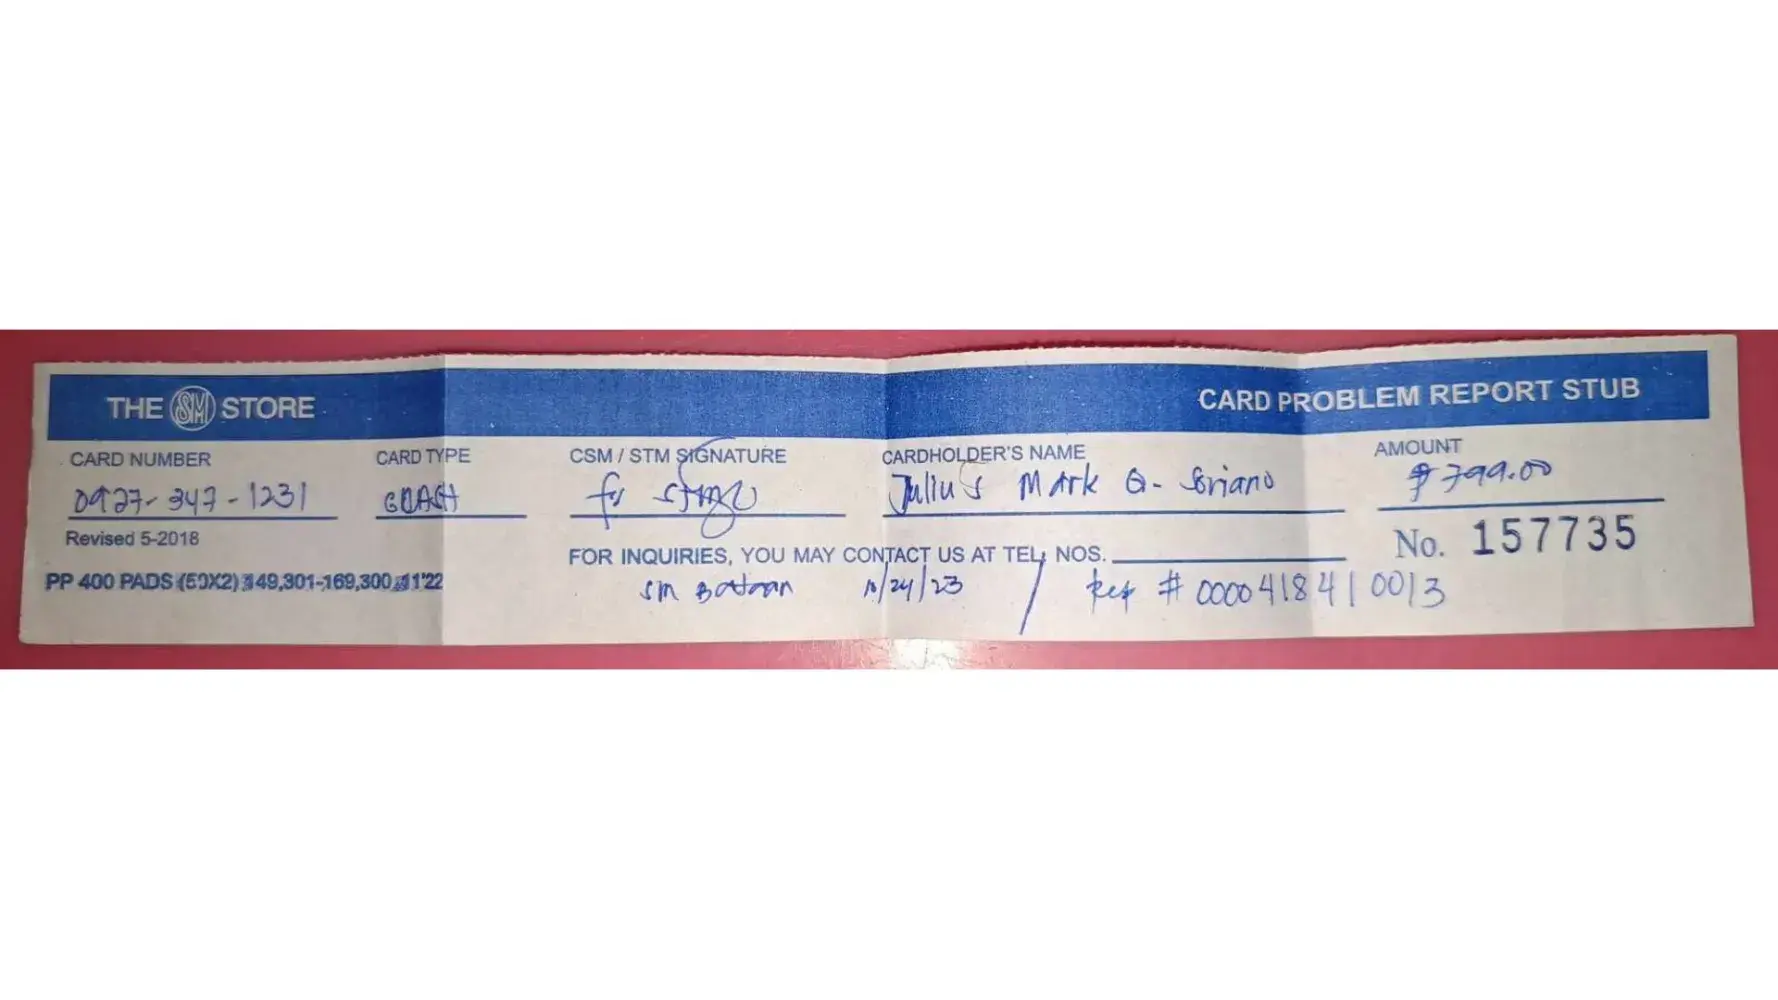 THE SM STORE CARD PROBLEM REPORT STUB
CARD NUMBER CARD TYPE CSM / STM SIGNATURE CARDHOLDER'S NAME AMOUNT
0927-347-1231 GCASH Julius Mark Q. Soriano ₱799.00
Revised 5-2018 FOR INQUIRIES, YOU MAY CONTACT US AT TEL. NOS. No. 157735
PP 400 PADS (50X2) 149,301-169,300 11'22 SM Bataan 10/24/23 / Ref # 0000418410013